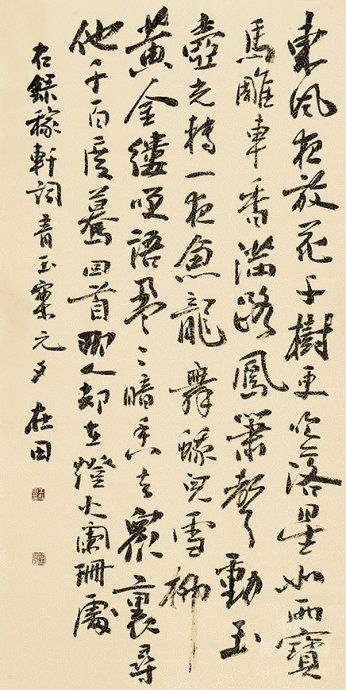 東風夜放花千樹更吹落星如雨寶
馬雕車香滿路鳳簫聲動玉
壺光轉一夜魚龍舞蛾兒雪柳
黃金縷笑語盈〻暗香去眾裏尋
他千百度驀回首那人却在燈火闌珊處
右錄稼軒詞青玉案元夕 在田